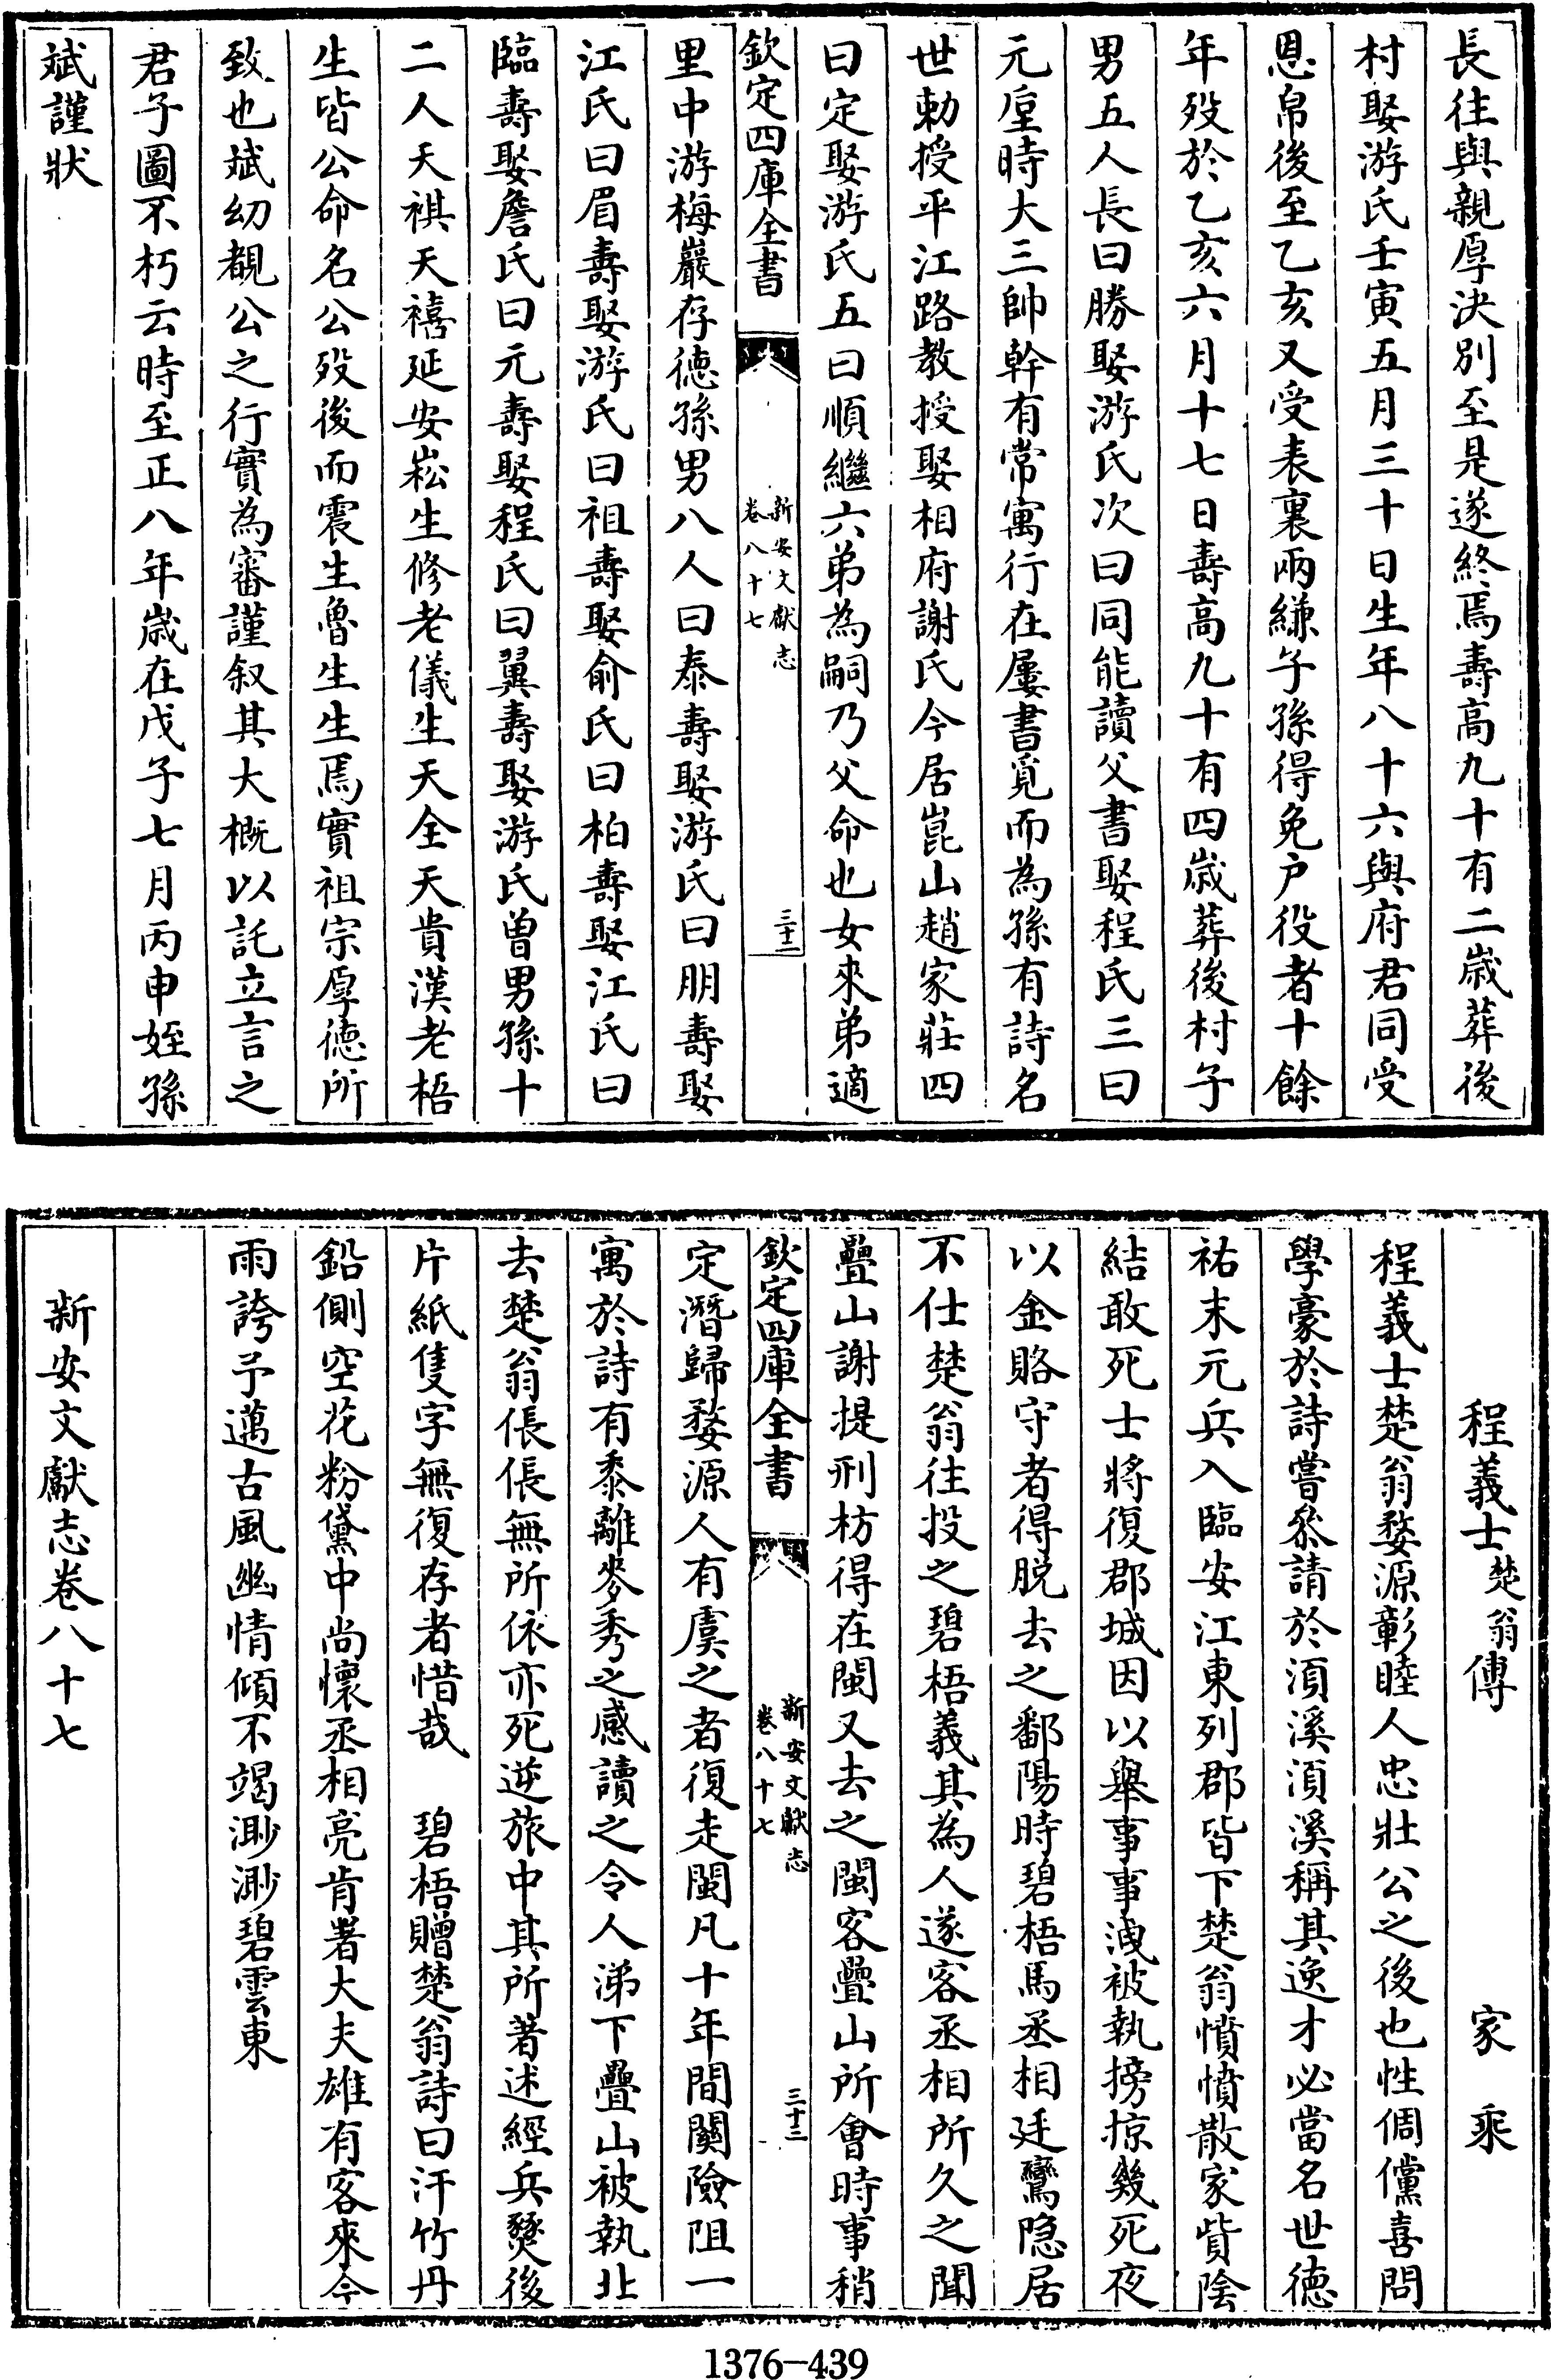 長往與親厚決別至是遂終焉壽高九十有二歲葬後
村娶游氏壬寅五月三十日生年八十六與府君同受
恩帛後至乙亥又受表裏兩縑子孫得免户役者十餘
年歿於乙亥六月十七日壽高九十有四歲葬後村子
男五人長曰勝娶游氏次曰同能讀父書娶程氏三曰
元垕時大三帥幹有常寓行在屢書覓而為孫有詩名
世勅授平江路教授娶相府謝氏今居崑山趙家莊四
曰定娶游氏五曰順繼六弟為嗣乃父命也女來弟適
欽定四庫全書
新安文獻志
卷八十七
三十二
里中游梅巖存德孫男八人曰泰壽娶游氏曰朋壽娶
江氏曰眉壽娶游氏曰祖壽娶俞氏曰柏壽娶江氏曰
臨壽娶詹氏曰元壽娶程氏曰翼壽娶游氏曽男孫十
二人天祺天禧延安崧生修老儀生天全天貴漢老梧
生皆公命名公歿後而震生魯生生焉實祖宗厚德所
致也斌幼覩公之行實為審謹叙其大概以託立言之
君子圖不朽云時至正八年歲在戊子七月丙申姪孫
斌謹狀
程義士楚翁傳　家乘
程義士楚翁婺源彰睦人忠壯公之後也性倜儻喜問
學豪於詩嘗叅請於湏溪湏溪稱其逸才必當名世德
祐末元兵入臨安江東列郡皆下楚翁憤憤散家貲陰
結敢死士將復郡城因以舉事事洩被執搒掠幾死夜
以金賂守者得脱去之鄱陽時碧梧馬丞相廷鸞隠居
不仕楚翁往投之碧梧義其為人遂客丞相所久之聞
疊山謝提刑枋得在閩又去之閩客疊山所會時事稍
欽定四庫全書
新安文獻志
卷八十七
三十三
定潛歸婺源人有虞之者復走閩凡十年間關險阻一
寓於詩有黍離麥秀之感讀之令人涕下疊山被執北
去楚翁倀倀無所依亦死逆旅中其所著述經兵燹後
片紙隻字無復存者惜哉　碧梧贈楚翁詩曰汗竹丹
鉛側空花粉黛中尚懷丞相亮肯署大夫雄有客來今
雨誇予邁古風幽情傾不竭渺渺碧雲東
新安文獻志卷八十七
1376-439